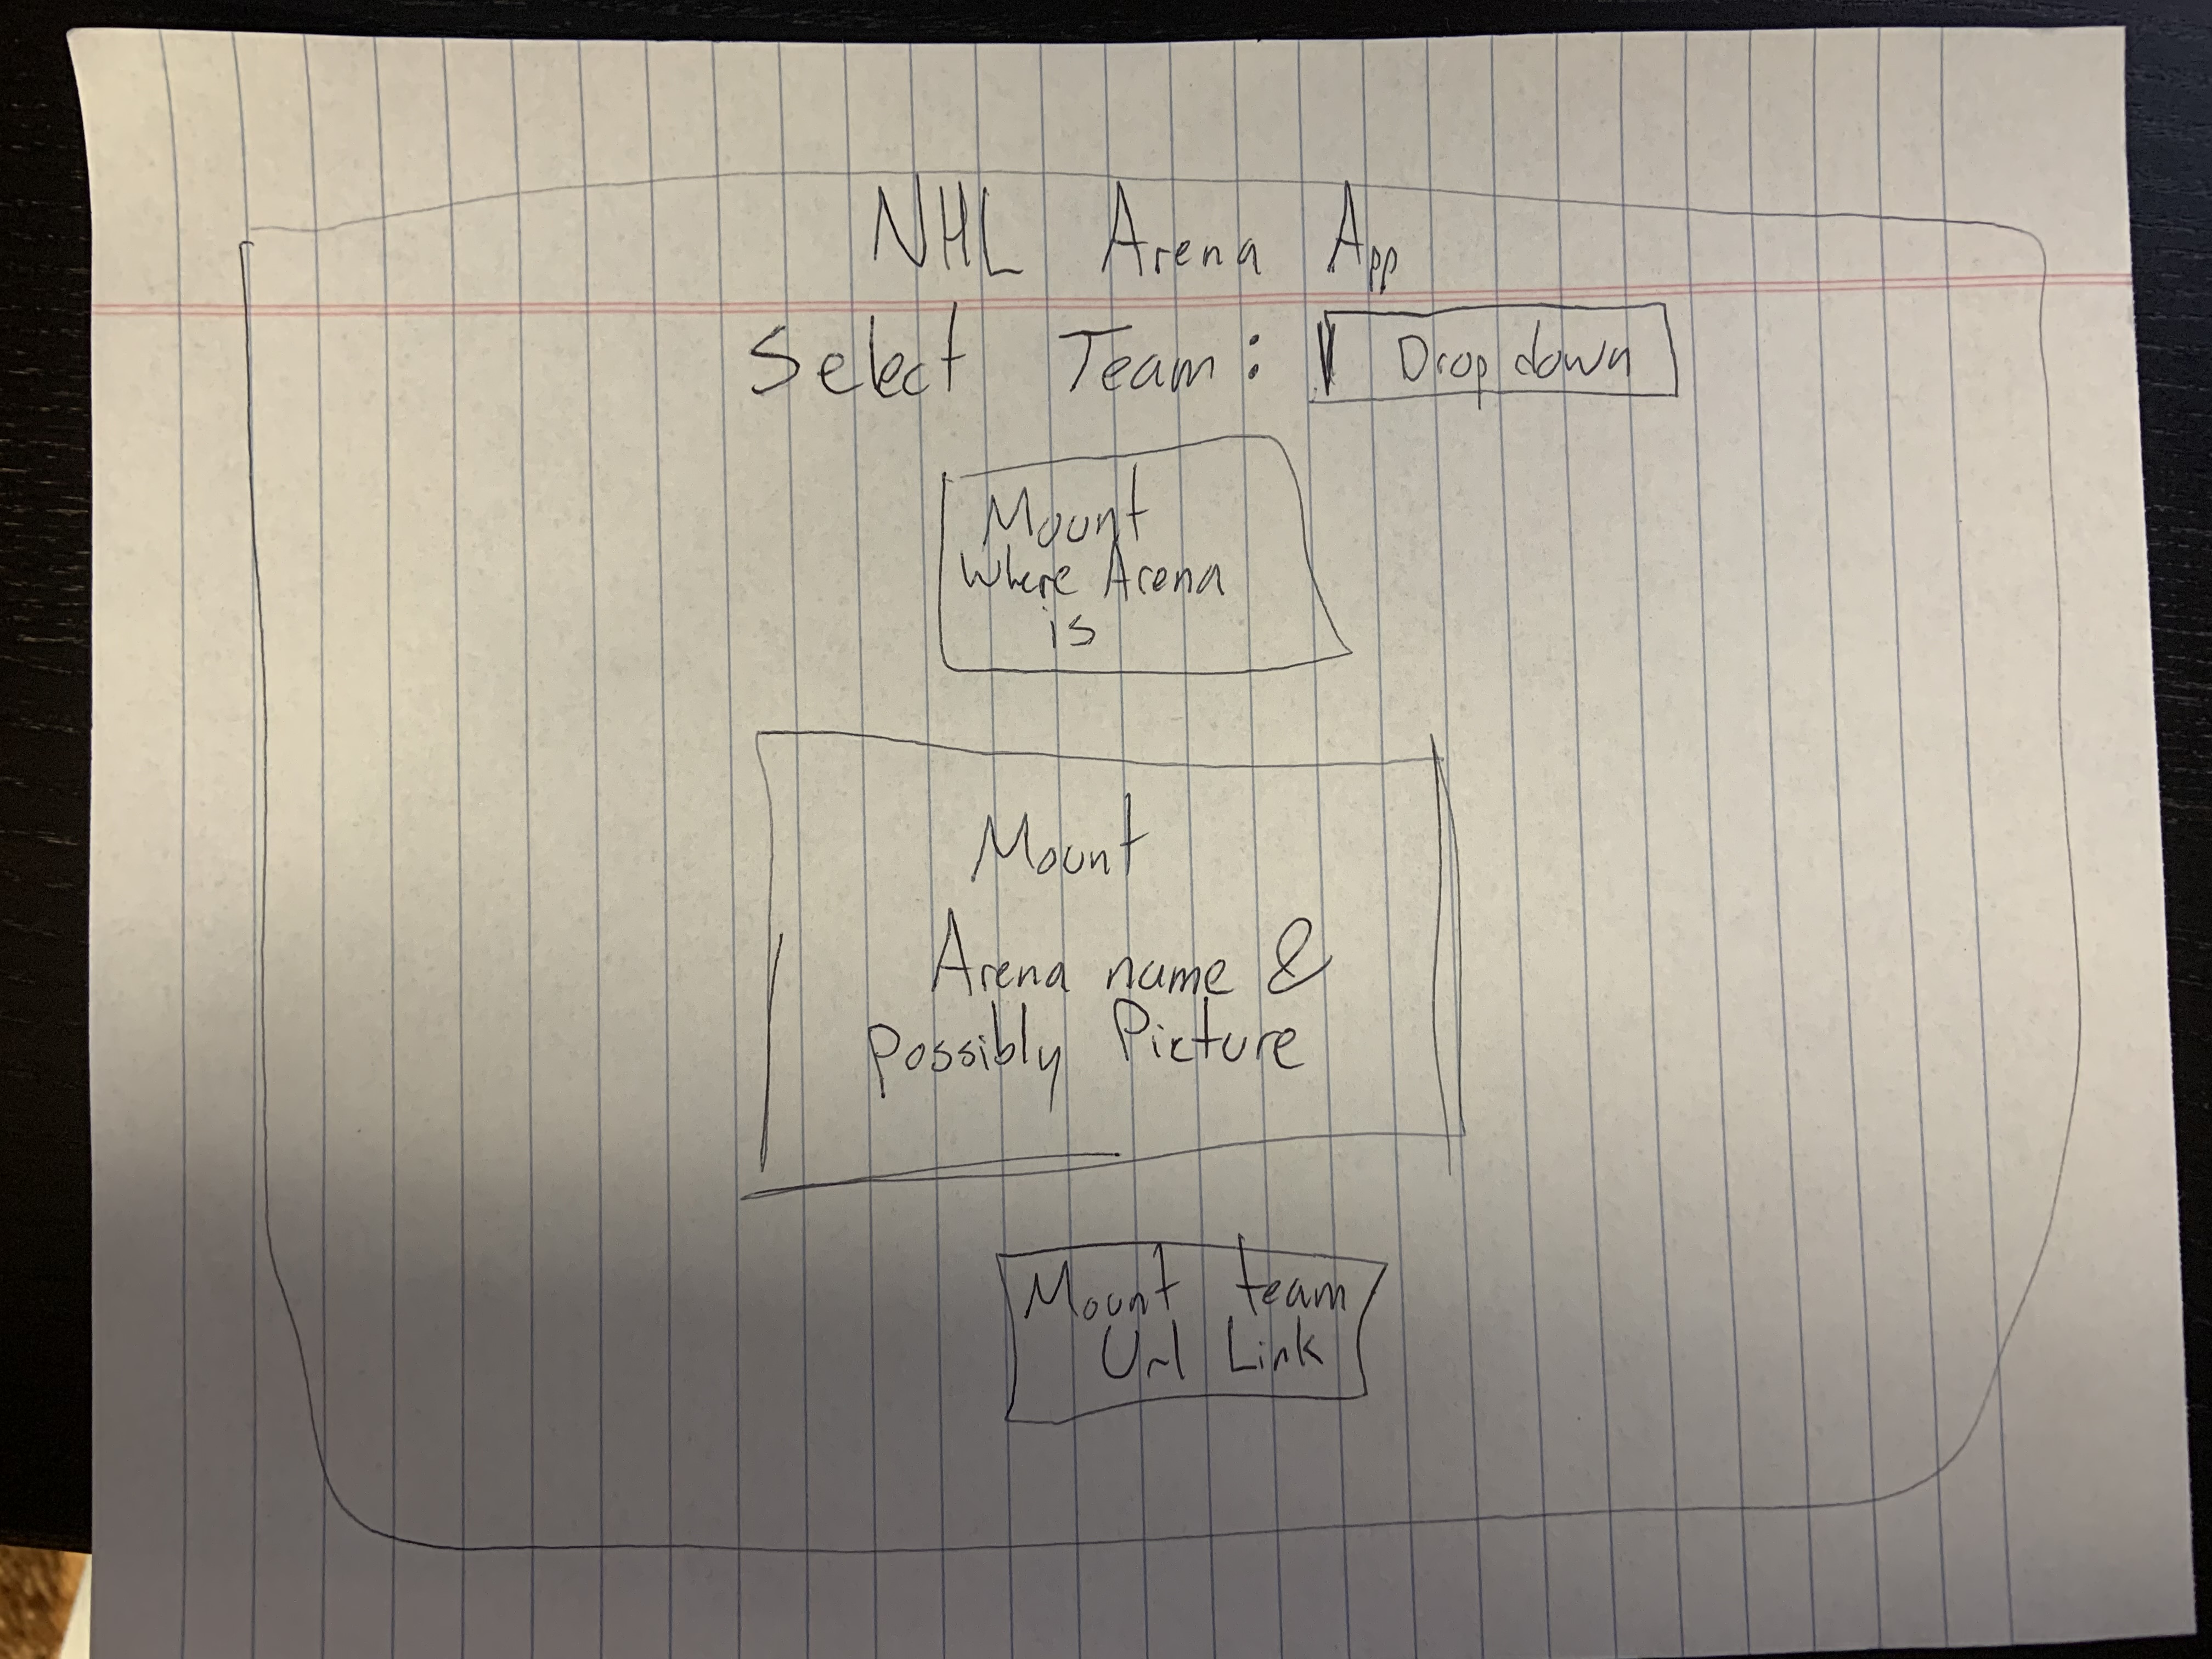 NHL Arena App
Select Team : Drop down
Mount
Where Arena
is
Mount
Arena name &
Possibly Picture
Mount team
Url Link